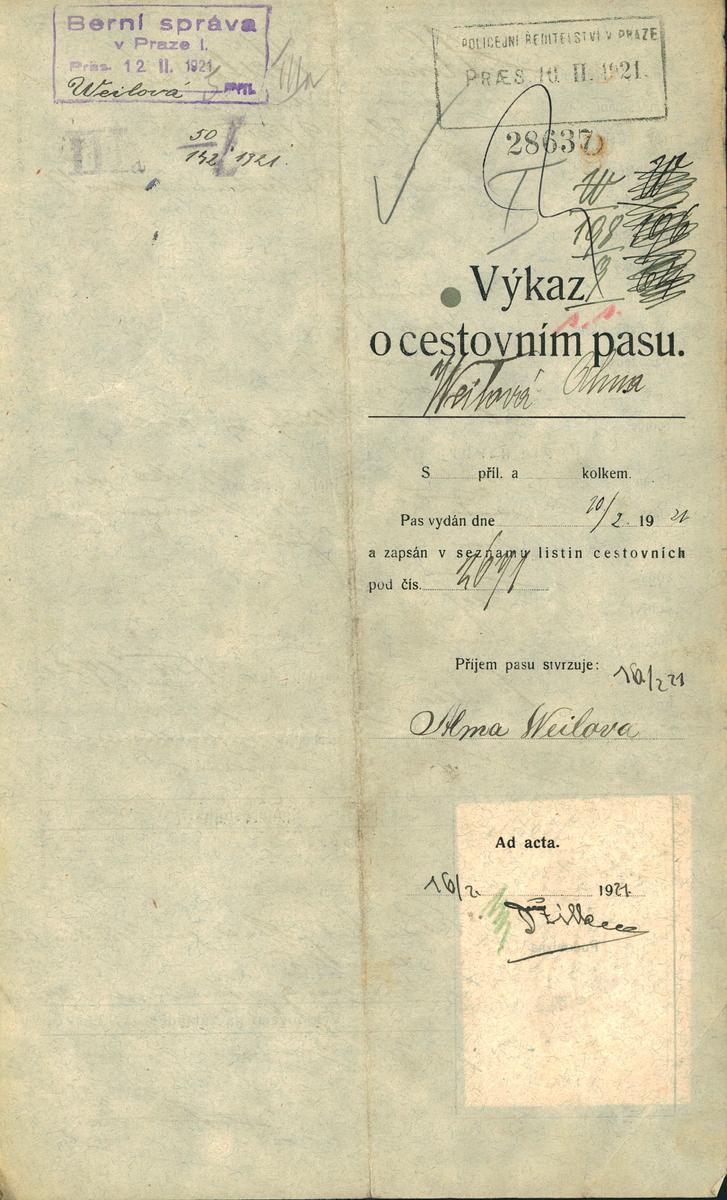 Berní správa
v Praze I.
Præs. 12 II. 1921
Weilová příl.
IIIa
III a 50/132 1921.
POLICEJNÍ ŘEDITELSTVÍ V PRAZE
PRÆS. 10. II. 1921.
28637
W
198
3
Výkaz
o cestovním pasu.
Weilová Alma
S příl. a kolkem.
Pas vydán dne 10/2. 19 21
a zapsán v seznamu listin cestovních
pod čís. 2691
Příjem pasu stvrzuje: 16/2 21
Alma Weilova
Ad acta.
16/2. 1921.